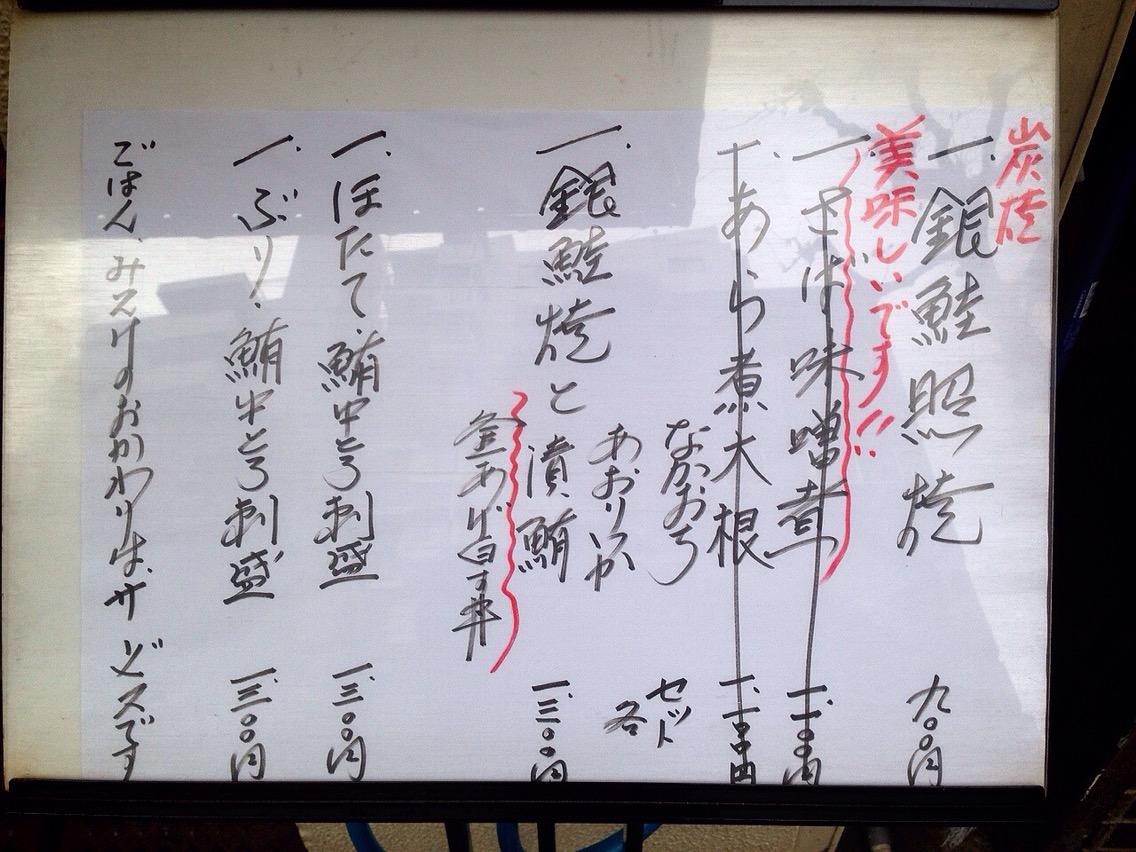 炭焼
一、銀鮭照焼 九〇〇円
美味しいです!!
一、さば味噌煮 一、一〇〇円
一、あら煮大根 一、一〇〇円
なかおち
あおりいか
セット
各
一、銀鮭焼と漬鮪 一、三〇〇円
釜あげ白す丼
一、ほたて、鮪中とろ刺盛 一、三〇〇円
一、ぶり、鮪中とろ刺盛 一、三〇〇円
ごはん、みそ汁のおかわりは、サービスです